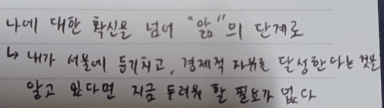 나에 대한 확신을 넘어 "앎"의 단계로
↳ 내가 서울에 등기치고, 경제적 자유를 달성한다는 것을
알고 있다면 지금 두려워 할 필요가 없다